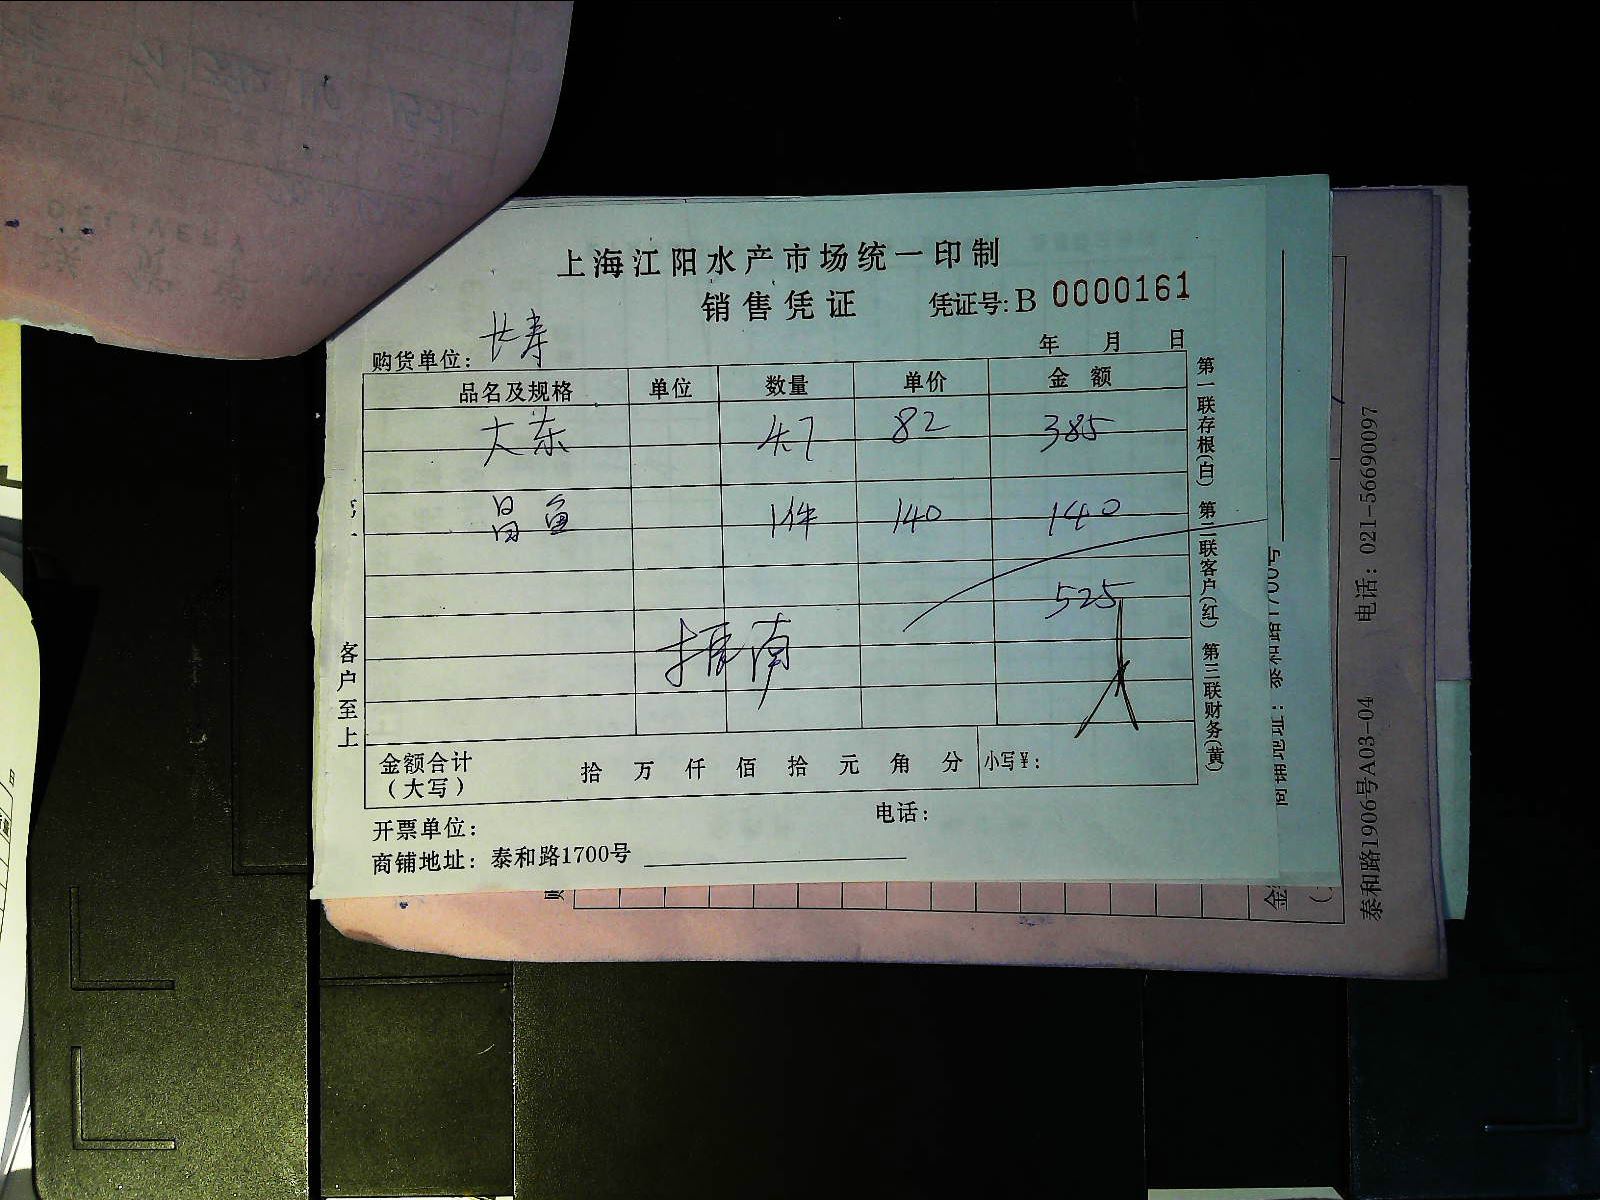 上海江阳水产市场统一印制
销售凭证 凭证号: B 0000161
购货单位: 长寿 年 月 日
品名及规格 单位 数量 单价 金额
大东 4.7 82 385
昌鱼 1件 140 140
525
金额合计（大写） 拾 万 仟 佰 拾 元 角 分 小写¥:
开票单位: 电话:
商铺地址: 泰和路1700号
客户至上
第一联存根(白) 第二联客户(红) 第三联财务(黄)
泰和路1906号A03-04 电话: 021-56690097
DELIVERY